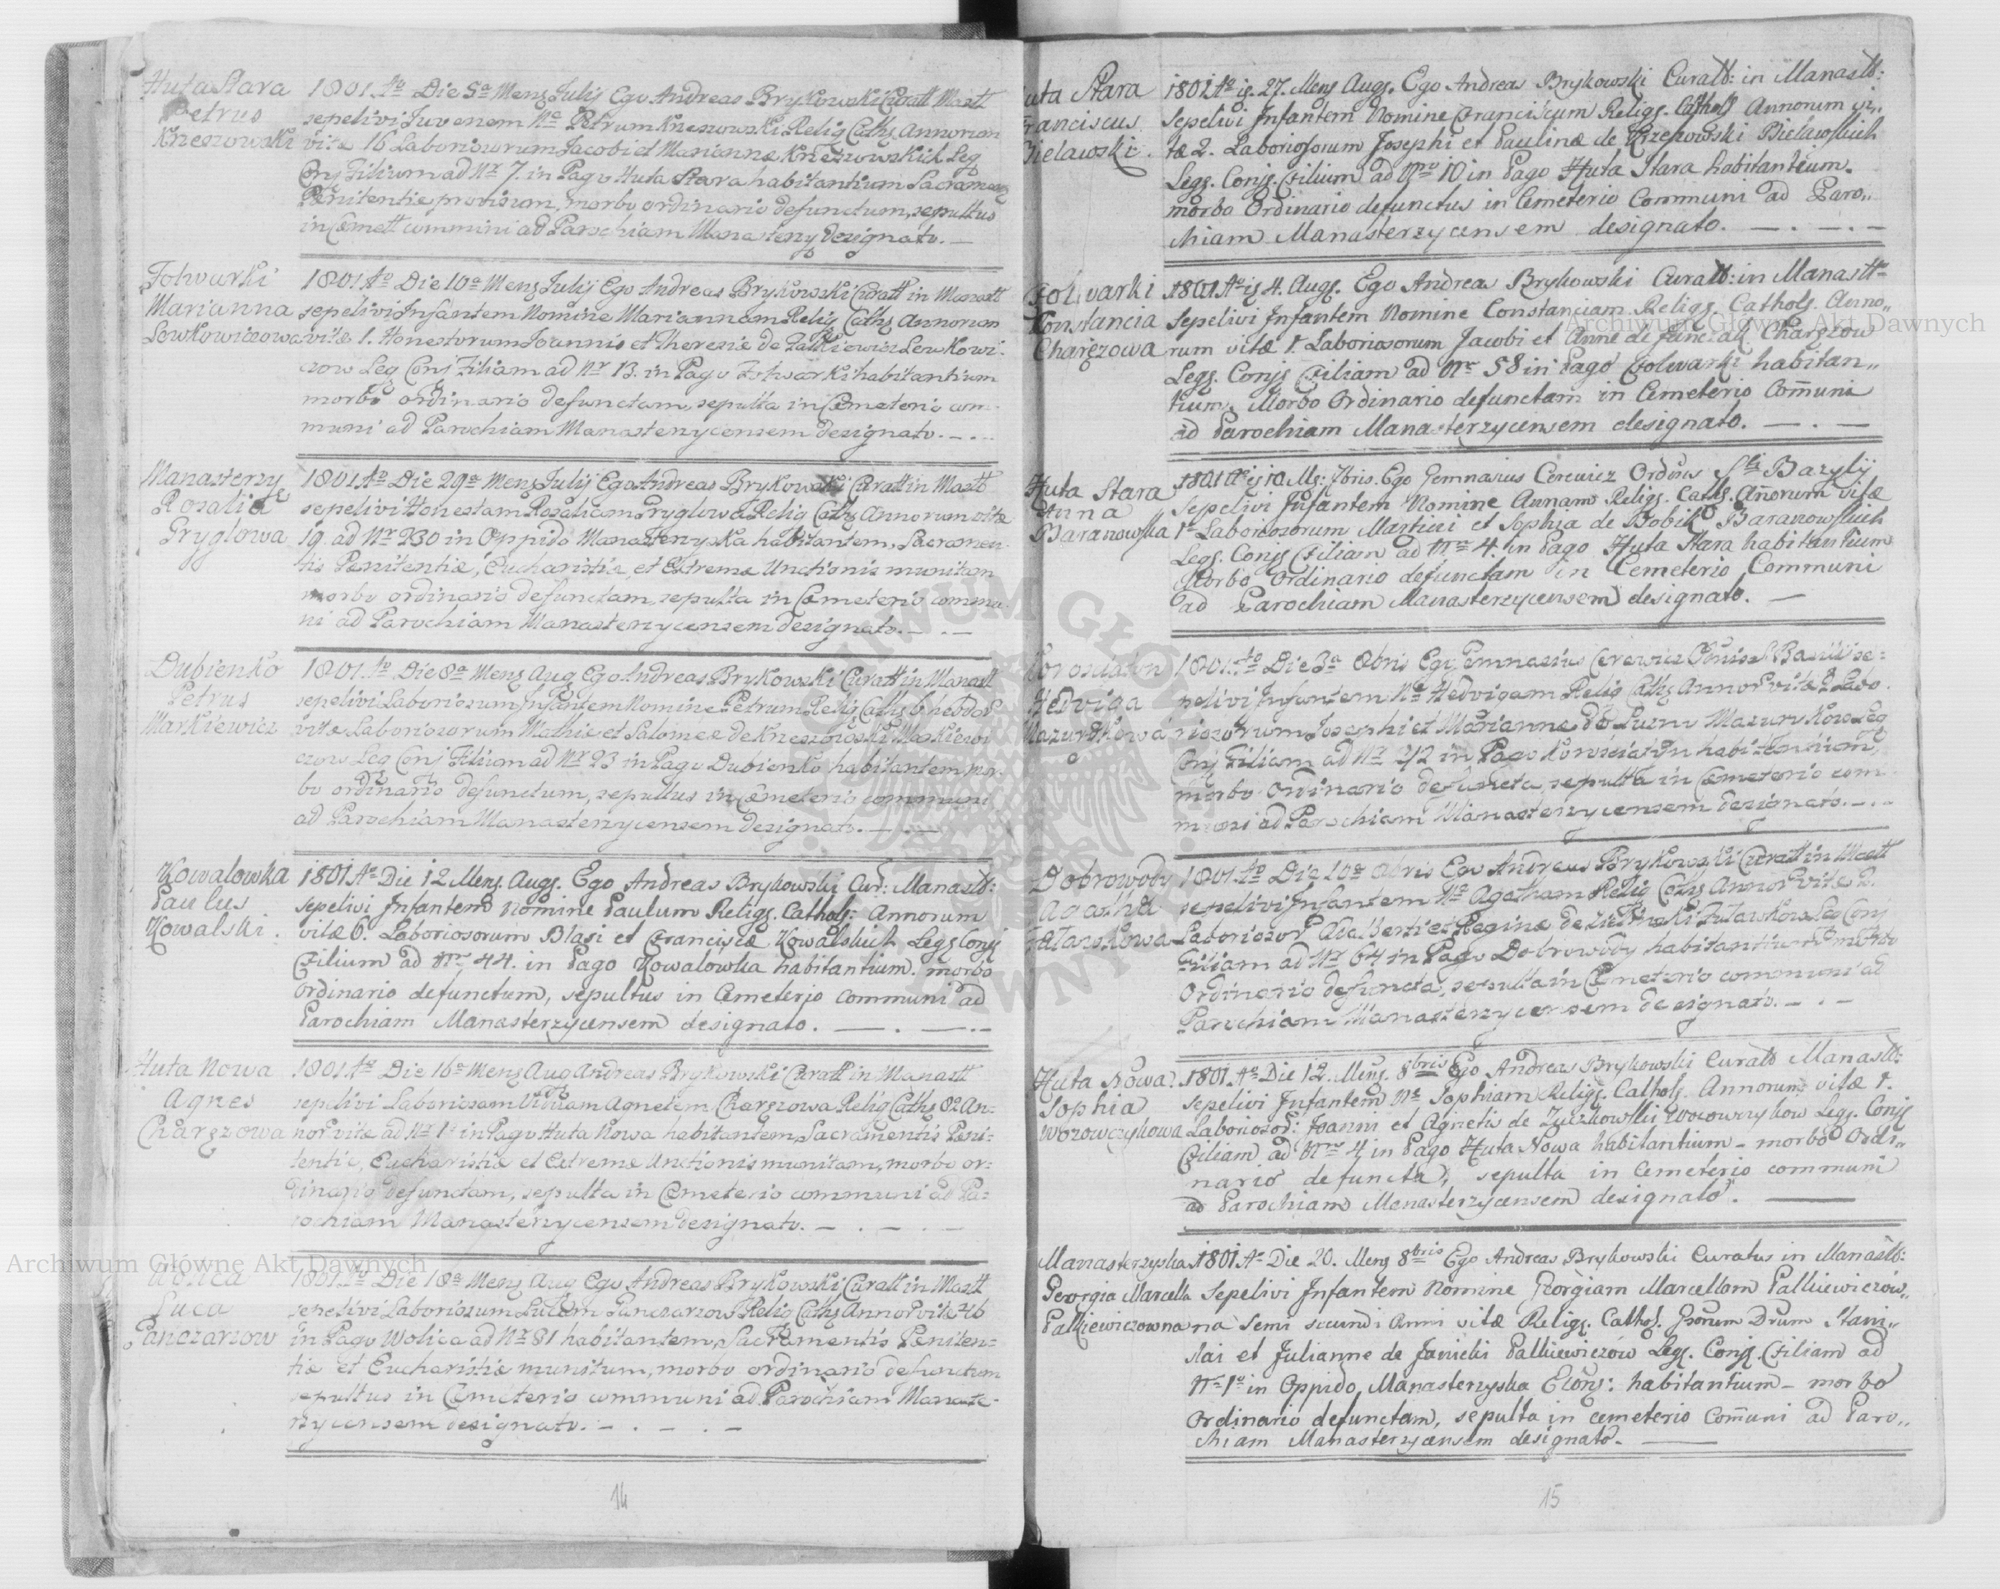 Huta Stara
Petrus
Kneszowski
1801 Ao Die 5a Mens Julij Ego Andreas Brykowski Curatt Mastt
sepelivi Juvenem Ne Petrum Kneszowski Relig Caths Annorum
vitæ 16 Laboriosorum Jacobi et Marianna Kneszowskich Leg
Conj Filium ad Nr 7. in Pago Huta Stara habitantium Sacramen
Pœnitentiæ provisum, morbo ordinario defunctum, sepultus
in Cœmett communi ad Parochiam Manasterzy designato. —
Folwarki
Marianna
Lewkowiczowa
1801 Ao Die 10a Mens Julij Ego Andreas Brykowski Curatt in Manastt
sepelivi Infantem Nomine Mariannam Relig Caths Annorum
vitæ 1. Honestorum Joannis et Theresiæ de Zatkiewicz Lewkowi-
czow Leg Conj Filiam ad Nr 13. in Pago Folwarki habitantium
morbo ordinario defunctam, sepulta in Cœmeterio com-
muni ad Parochiam Manasterzycensem designato. — . —
Manasterzy
Rosalia
Gryglowa
1801 Ao Die 29a Mens Julij Ego Andreas Brykowski Curatt in Mastt
sepelivi Honestam Rosaliam Gryglowa Relig Caths Annorum vitæ
19. ad Nr 230 in Oppido Manasterzyska habitantem, Sacramen-
tis Pœnitentiæ, Eucharistiæ, et Extremæ Unctionis munitam
morbo ordinario defunctam, sepulta in Cœmeterio commu-
ni ad Parochiam Manasterzycensem designato. — . —
Dubienko
Petrus
Markiewicz
1801 Ao Die 8a Mens Aug Ego Andreas Brykowski Curatt in Manastt
sepelivi Laboriosum Infantem Nomine Petrum Relig Caths 6 hebdod
vitæ Laboriosorum Mathiæ et Salomeæ de Kneszowski Markiewi
czow Leg Conj Filium ad Nr 23 in Pago Dubienko habitantem mor-
bo ordinario defunctum, sepultus in Cœmeterio communi
ad Parochiam Manasterzycensem designato. — . —
Kowalowka
Paulus
Kowalski.
1801 Ao Die 12 Mens. Augs. Ego Andreas Brykowski Cur: Manastt:
sepelivi Infantem Nomine Paulum Religs. Cathols: Annorum
vitæ 6. Laboriosorum Blasi et Franciscæ Kowalskich Legs Conjs
Filium ad Nro 44. in Pago Kowalowka habitantium. morbo
Ordinario defunctum, sepultus in Cemeterio communi ad
Parochiam Manasterzycensem designato. — . —
Huta Nowa
Agnes
Charęzowa
1801 Ao Die 16a Mens Aug Andreas Brykowski Curatt in Manastt
sepelivi Laboriosam Viduam Agnetem Charęzowa Relig Caths 82 An-
nor vitæ ad Nr 1o in Pago Huta Nowa habitantem, Sacramentis Pœni-
tentiæ, Eucharistiæ et Extremæ Unctionis munitam, morbo or-
dinario defunctam, sepulta in Cœmeterio communi ad Pa-
rochiam Manasterzycensem designato. — . — . —
Wolica
Luca
Panczarzow
1801 Ao Die 18a Mens Aug Ego Andreas Brykowski Curatt in Mastt
sepelivi Laboriosum Lucam Panczarzow Relig Caths Annor vitæ 46
in Pago Wolica ad Nr 81 habitantem, Sacramentis Pœniten-
tiæ et Eucharistiæ munitum, morbo ordinario defunctum
sepultus in Cœmeterio communi ad Parochiam Manaste-
rzycensem designato. — . — . —
14
uta Stara
Franciscus
Bielawski.
1801 Ao is. 27. Mens Augs. Ego Andreas Brykowski Curatt: in Manastt:
Sepelivi Infantem Nomine Franciscum Religs. Cathols Annorum vi,,
tæ 2. Laboriosorum Josephi et Paulinæ de Krzekowski Bielawskich
Legs. Conjs. Filium ad Nro 10 in Pago Huta Stara habitantium.
morbo Ordinario defunctus in Cemeterio Communi ad Paro,,
chiam Manasterzycensem designato. — . — . —
Folwarki
Constancia
Charęzowa
1801 Ao is 4. Augs. Ego Andrea Brykowski Curatt: in Manastt
Sepelivi Infantem Nomine Constanciam Religs. Cathols. Anno,,
rum vitæ 1. Laboriosorum Jacobi et Annæ defunctæ Charęzow
Legs. Conjs Filiam ad Nro 58 in Pago Folwarki habitan,,
tium, Morbo Ordinario defunctam in Cemeterio Comuni
ad Parochiam Manasterzycensem designato. — . —
Huta Stara
Anna
Baranowska
1801 Ao is 10 Ms: 7bris. Ego Gemnasius Cerewicz Ordinis Sti Bazylij
Sepelivi Infantem Nomine Annam Religs. Caths. Anorum vitæ
1o Laboriosorum Martini et Sophia de Bobik Baranowskich
Legs. Conjs Filiam ad Nro 4. in Pago Huta Stara habitantium
Morbo Ordinario defunctam in Cemeterio Communi
ad Parochiam Manasterzycensem designato. —
Korosciatyn
Hedviga
Mazurkowa
1801 Ao Die 3a 8bris Ego Gemnasius Cerewicz Basilii se-
pelivi Infantem Ne Hedvigam Relig Caths Annor vitæ 2 Labo
riosorum Josephi et Marianne de Mazurkow Leg
Conj Filiam ad Nr 2/2 in Pago Korosciatyn habitantium,
morbo Ordinario defuncta, sepulta in Cœmeterio com-
muni ad Parochiam Manasterzycensem designato. — . —
Dobrowody
Agatha
1801 Ao Die 10a 8bris Ego Andreas Brykowski Curatt in Mastt
sepelivi Infantem Ne Agatham Relig Caths Annor vitæ 2.
Laborioso Adalberti et Reginæ de Leg Conj
Filiam ad Nr 64 in Pago Dobrowody habitantium morbo
Ordinario defuncta, sepulta in Cœmeterio communi ad
Parochiam Manasterzycensem designato. — . —
Huta Nowa.
Sophia
Wozowczykowa
1801 Ao Die 12. Mens. 8bris Ego Andreas Brykowski Curatt Manastt:
Sepelivi Infantem Ne Sophiam Religs. Cathols. Annorum vitæ 1.
Laboriosor: Joanni et Agnetis de Wozowczykow Legs. Conjs
Filiam ad Nro 4 in Pago Huta Nowa habitantium – morbo Ordi,,
nario defuncta, sepulta in Cemeterio communi
ad Parochiam Manasterzycensem designato. —
Manasterzyska
Georgia Marcella
Palkiewiczowna
1801 Ao Die 20. Mens 8bris Ego Andreas Brykowski Curatus in Manastt:
Sepelivi Infantem Nomine Georgiam Marcellam Palkiewiczow,,
na Semi secundi Anni vitæ Religs. Cathol. Grorum Drum Stani,,
slai et Julianne de Janicki Palkiewiczow Legs. Conjs. Filiam ad
Nro 1o in Oppido Manasterzyska habitantium – morbo
Ordinario defunctam, sepulta in cemeterio Comuni ad Paro,,
chiam Manasterzycensem designato. —
15
Archiwum Główne Akt Dawnych
Archiwum Główne Akt Dawnych